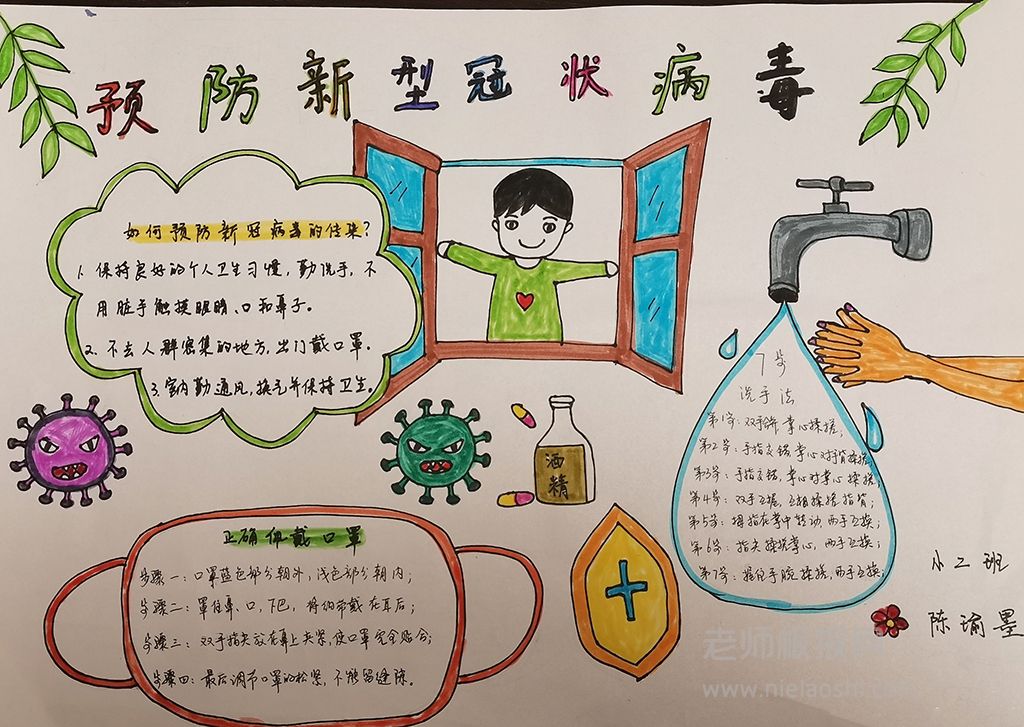 预防新型冠状病毒
如何预防新冠病毒的传染？
1. 保持良好的个人卫生习惯，勤洗手，不
用脏手触摸眼睛、口和鼻子。
2. 不去人群密集的地方，出门戴口罩。
3. 室内勤通风，换气并保持卫生。
酒
精
7步
洗手法
第1步：双手合并掌心揉搓；
第2步：手指交错掌心对手背揉搓
第3步：手指交错，掌心对掌心揉搓，
第4步：双手互握，互相揉搓指背；
第5步：拇指在掌中转动，两手互换；
第6步：指尖揉搓掌心，两手互换；
第7步：握住手腕揉搓，两手互换；
正确佩戴口罩
步骤一：口罩蓝色部分朝外，浅色部分朝内；
步骤二：罩住鼻、口，下巴，将绑带戴在耳后；
步骤三：双手指尖放在鼻上夹紧，使口罩完全贴合；
步骤四：最后调节口罩的松紧，不能留缝隙。
小二班
陈谕墨
老师板报网
www.nielaoshi.com